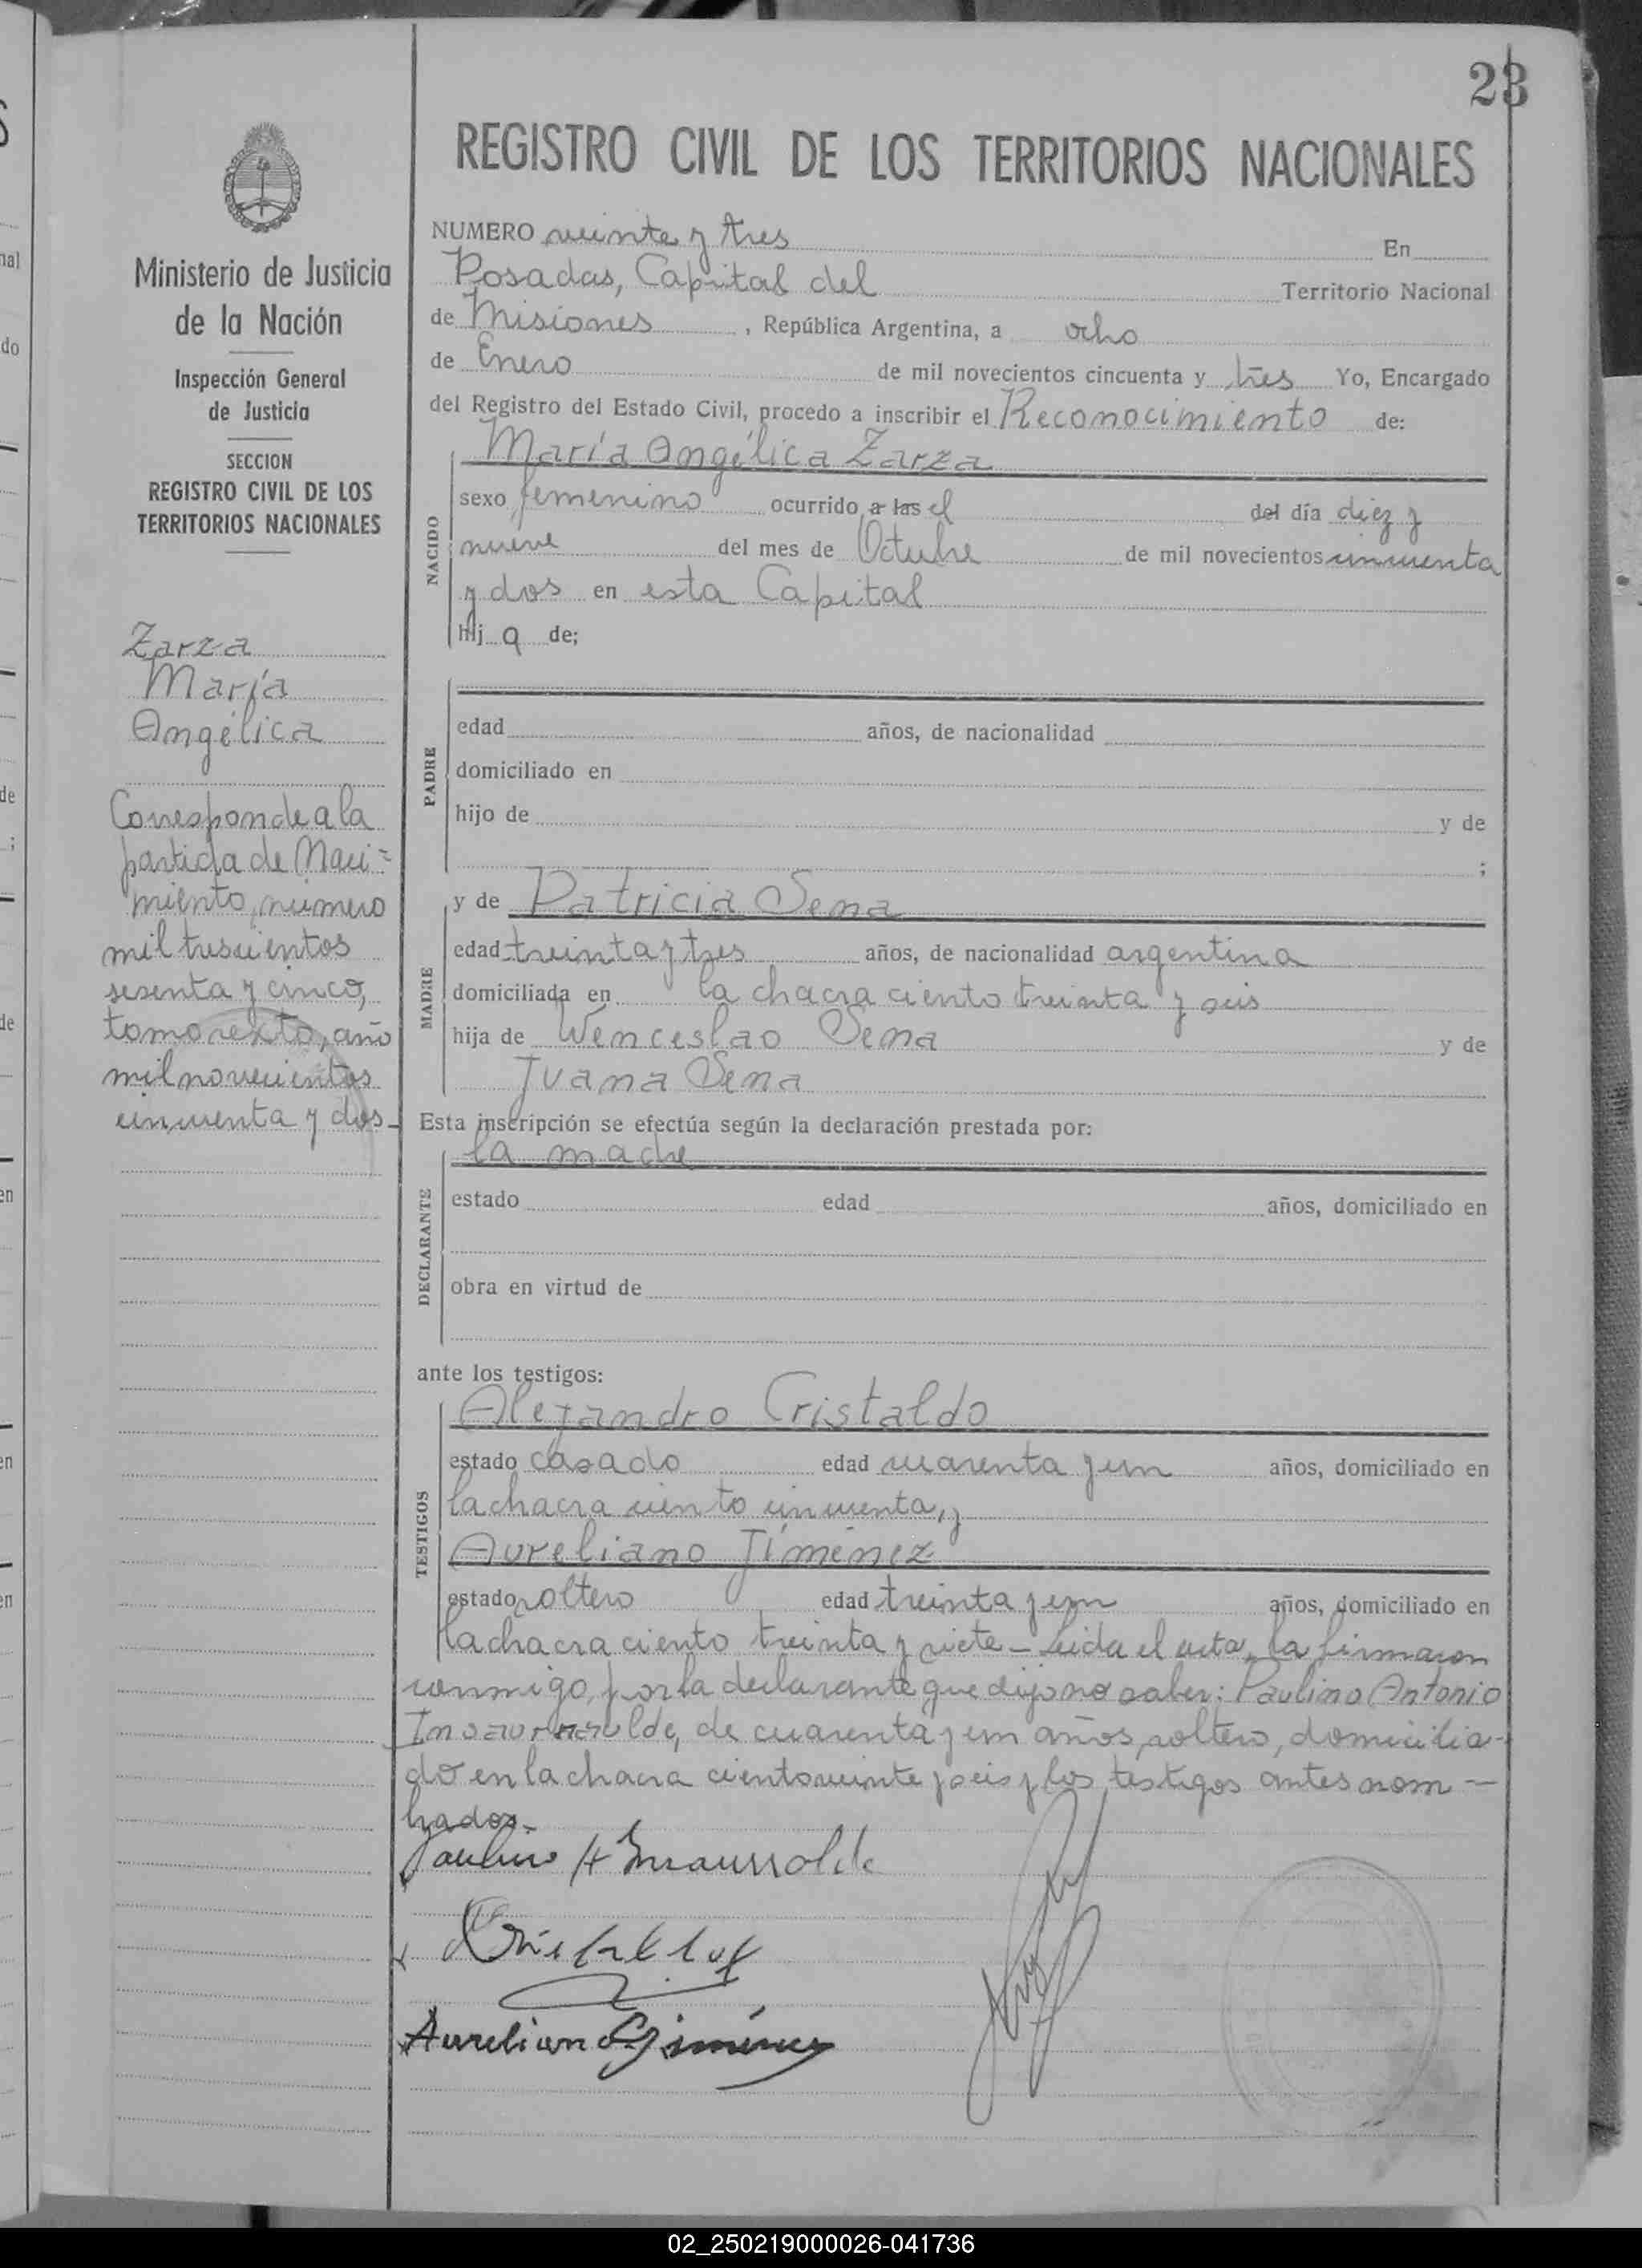 23
REGISTRO CIVIL DE LOS TERRITORIOS NACIONALES
Ministerio de Justicia
de la Nación
Inspección General
de Justicia
SECCION
REGISTRO CIVIL DE LOS
TERRITORIOS NACIONALES
Zarza
María
Angélica
Corresponde a la
partida de Naci=
miento, número
mil trescientos
sesenta y cinco,
tomo sexto, año
mil novecientos
cincuenta y dos-
NUMERO veinte y tres En
Posadas, Capital del Territorio Nacional
de Misiones, República Argentina, a ocho
de Enero de mil novecientos cincuenta y tres Yo, Encargado
del Registro del Estado Civil, procedo a inscribir el Reconocimiento de:
María Angélica Zarza
NACIDO
sexo femenino ocurrido a las el del día diez y
nueve del mes de Octubre de mil novecientos cincuenta
y dos en esta Capital
hij a de;
PADRE
edad años, de nacionalidad
domiciliado en
hijo de y de
;
y de Patricia Sena
MADRE
edad treinta y tres años, de nacionalidad argentina
domiciliada en la chacra ciento treinta y seis
hija de Wenceslao Sena y de
Juana Sena
Esta inscripción se efectúa según la declaración prestada por:
la madre
DECLARANTE
estado edad años, domiciliado en
obra en virtud de
ante los testigos:
Alejandro Cristaldo
TESTIGOS
estado casado edad cuarenta y un años, domiciliado en
la chacra ciento cincuenta, y
Aureliano Jiménez
estado soltero edad treinta y un años, domiciliado en
la chacra ciento treinta y siete - Leida el acta, la firmaron
conmigo, por la declarante que dijo no saber: Paulino Antonio
de cuarenta y un años, soltero, domicilia-
do en la chacra ciento veinte y seis y los testigos antes nom-
brados.-
Paulino A Insaurralde
Cristaldo
Aureliano Giménez
02_250219000026-041736